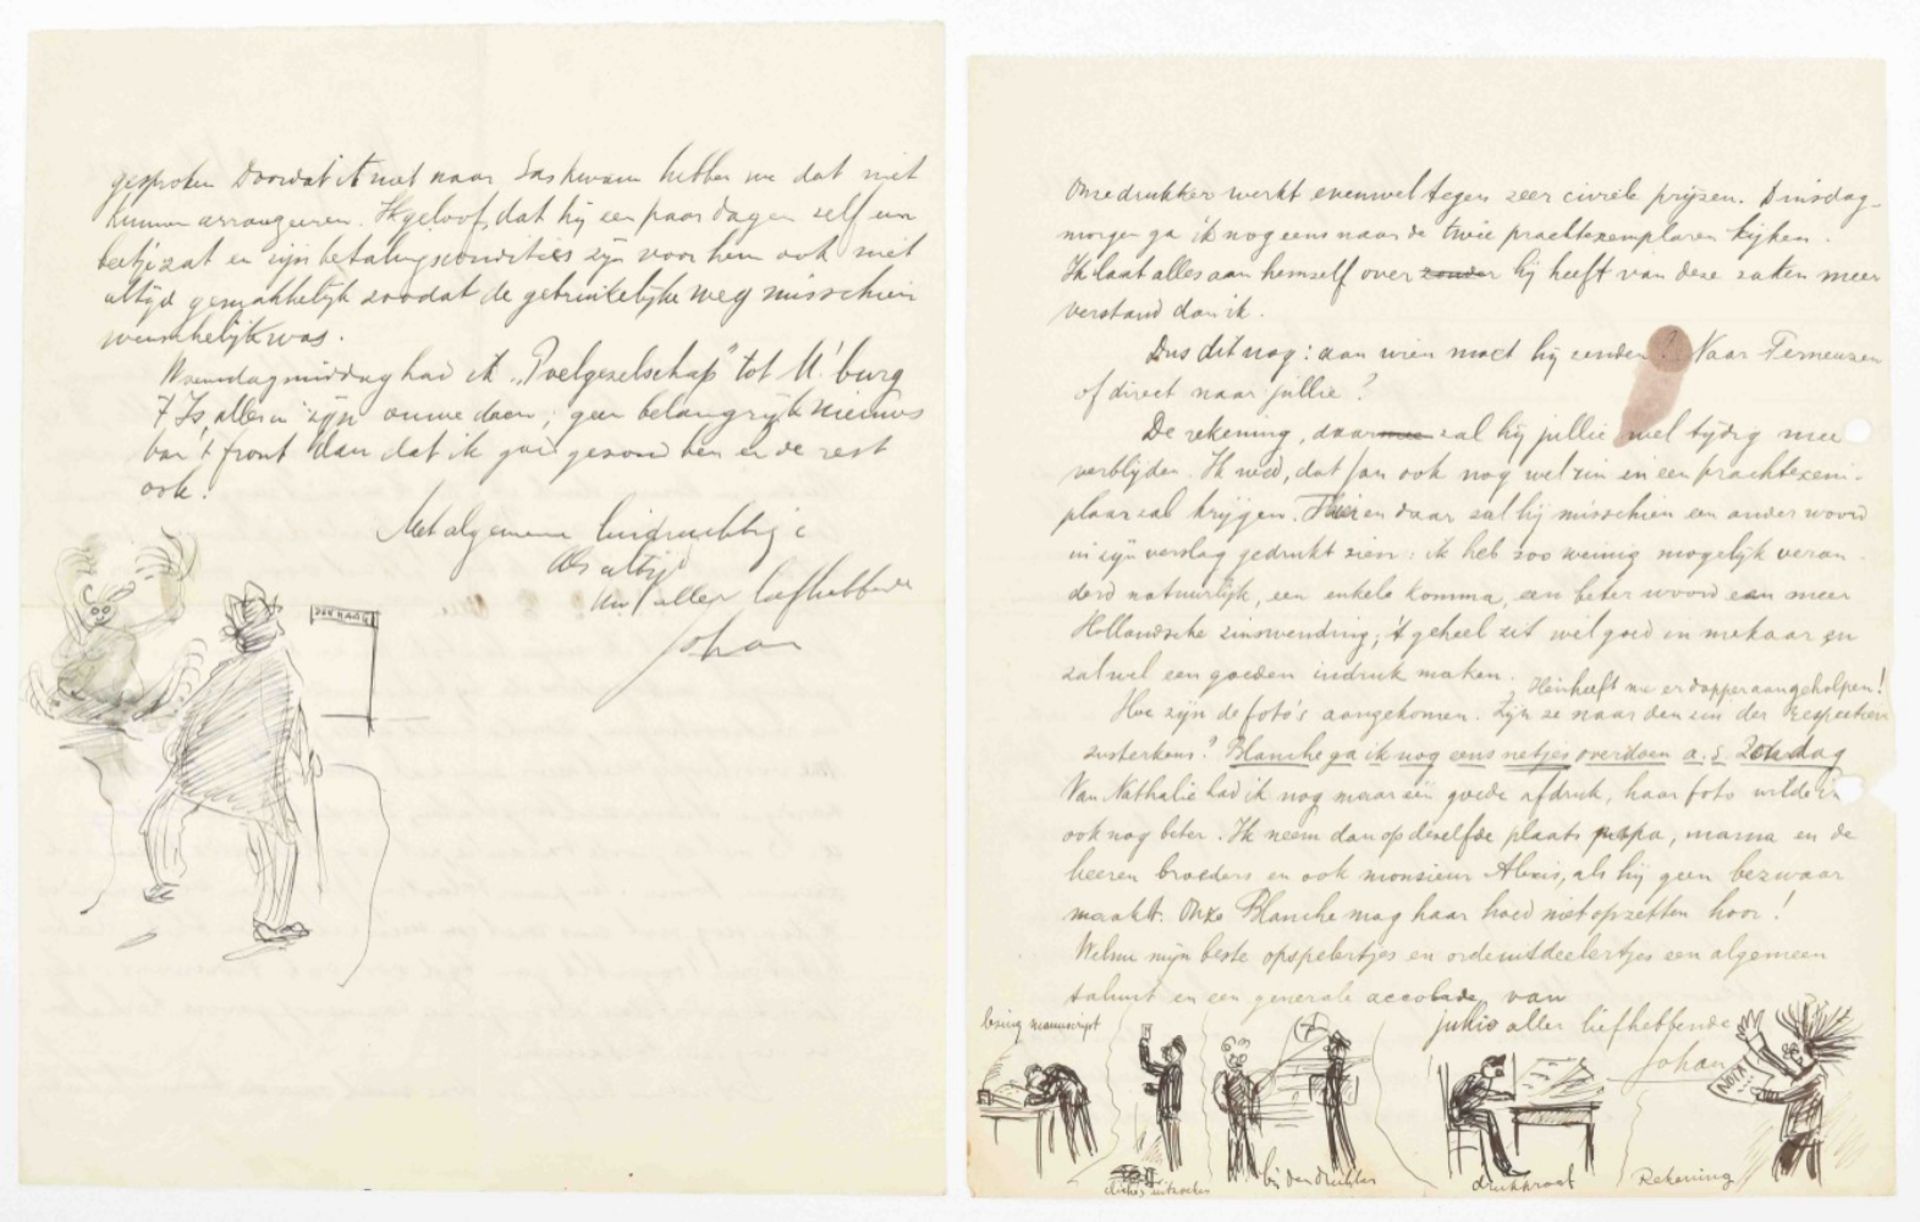 gesproken Doordat ik niet naar Sas kwam hebben we dat niet
kunnen arrangeeren. Ik geloof, dat hij een paar dagen zelf een
beetje zat en zijn betalingscondities zijn voor hem ook niet
altijd gemakkelijk zoodat de gebruikelijke weg misschien
wenschelijk was.
Woensdagmiddag had ik "Poelgezelschap" tot M'burg
7 Is, alles in zijn ouwe doen; geen belangrijk nieuws
van 't front dan dat ik goed gezond ben en de rest
ook.
Met algemeene
Als altijd
Uw aller liefhebbende
Johan
DEN HAAG
Onze drukker werkt evenwel tegen zeer civiele prijzen. Dinsdag-
morgen ga ik nog eens naar de twee prachtexemplaren kijken.
Ik laat alles aan hemzelf over zonder hij heeft van deze zaken meer
verstand dan ik.
Dus dit nog: aan wien moet hij zenden? Naar Terneuzen
of direct naar jullie?
De rekening, daarmee zal hij jullie wel tijdig mee
verblijden. Ik wed, dat Jan ook nog wel zin in een prachtexem-
plaar zal krijgen. Hier en daar zal hij misschien een ander woord
in zijn verslag gedrukt zien: ik heb zoo weinig mogelijk veran-
derd natuurlijk, een enkele komma, een beter woord een meer
Hollandsche zinswending; 't geheel zit wel goed in mekaar en
zal wel een goeden indruk maken. Hein heeft me er dapper aan geholpen!
Hoe zijn de foto's aangekomen. Zijn ze naar den zin der respectieve
zusterkens? Blanche ga ik nog eens netjes overdoen a.s. Zondag
Van Nathalie had ik nog maar één goede afdruk, haar foto wilde ik
ook nog beter. Ik neem dan op dezelfde plaats papa, mama en de
heeren broeders en ook monsieur Alexis, als hij geen bezwaar
maakt. Onze Blanche mag haar hoed niet opzetten hoor!
Welnu mijn beste opspelertjes en ordeuitdeelertjes een algemeen
saluut en een generale accolade van
jullie aller liefhebbende
Johan
lezing manuscript
clichés uitzoeken
bij den drukker
drukkroef
NOTA
Rekening